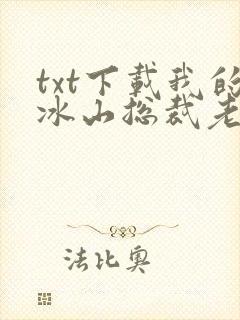 txt下载我的
冰山总裁老
法比奥